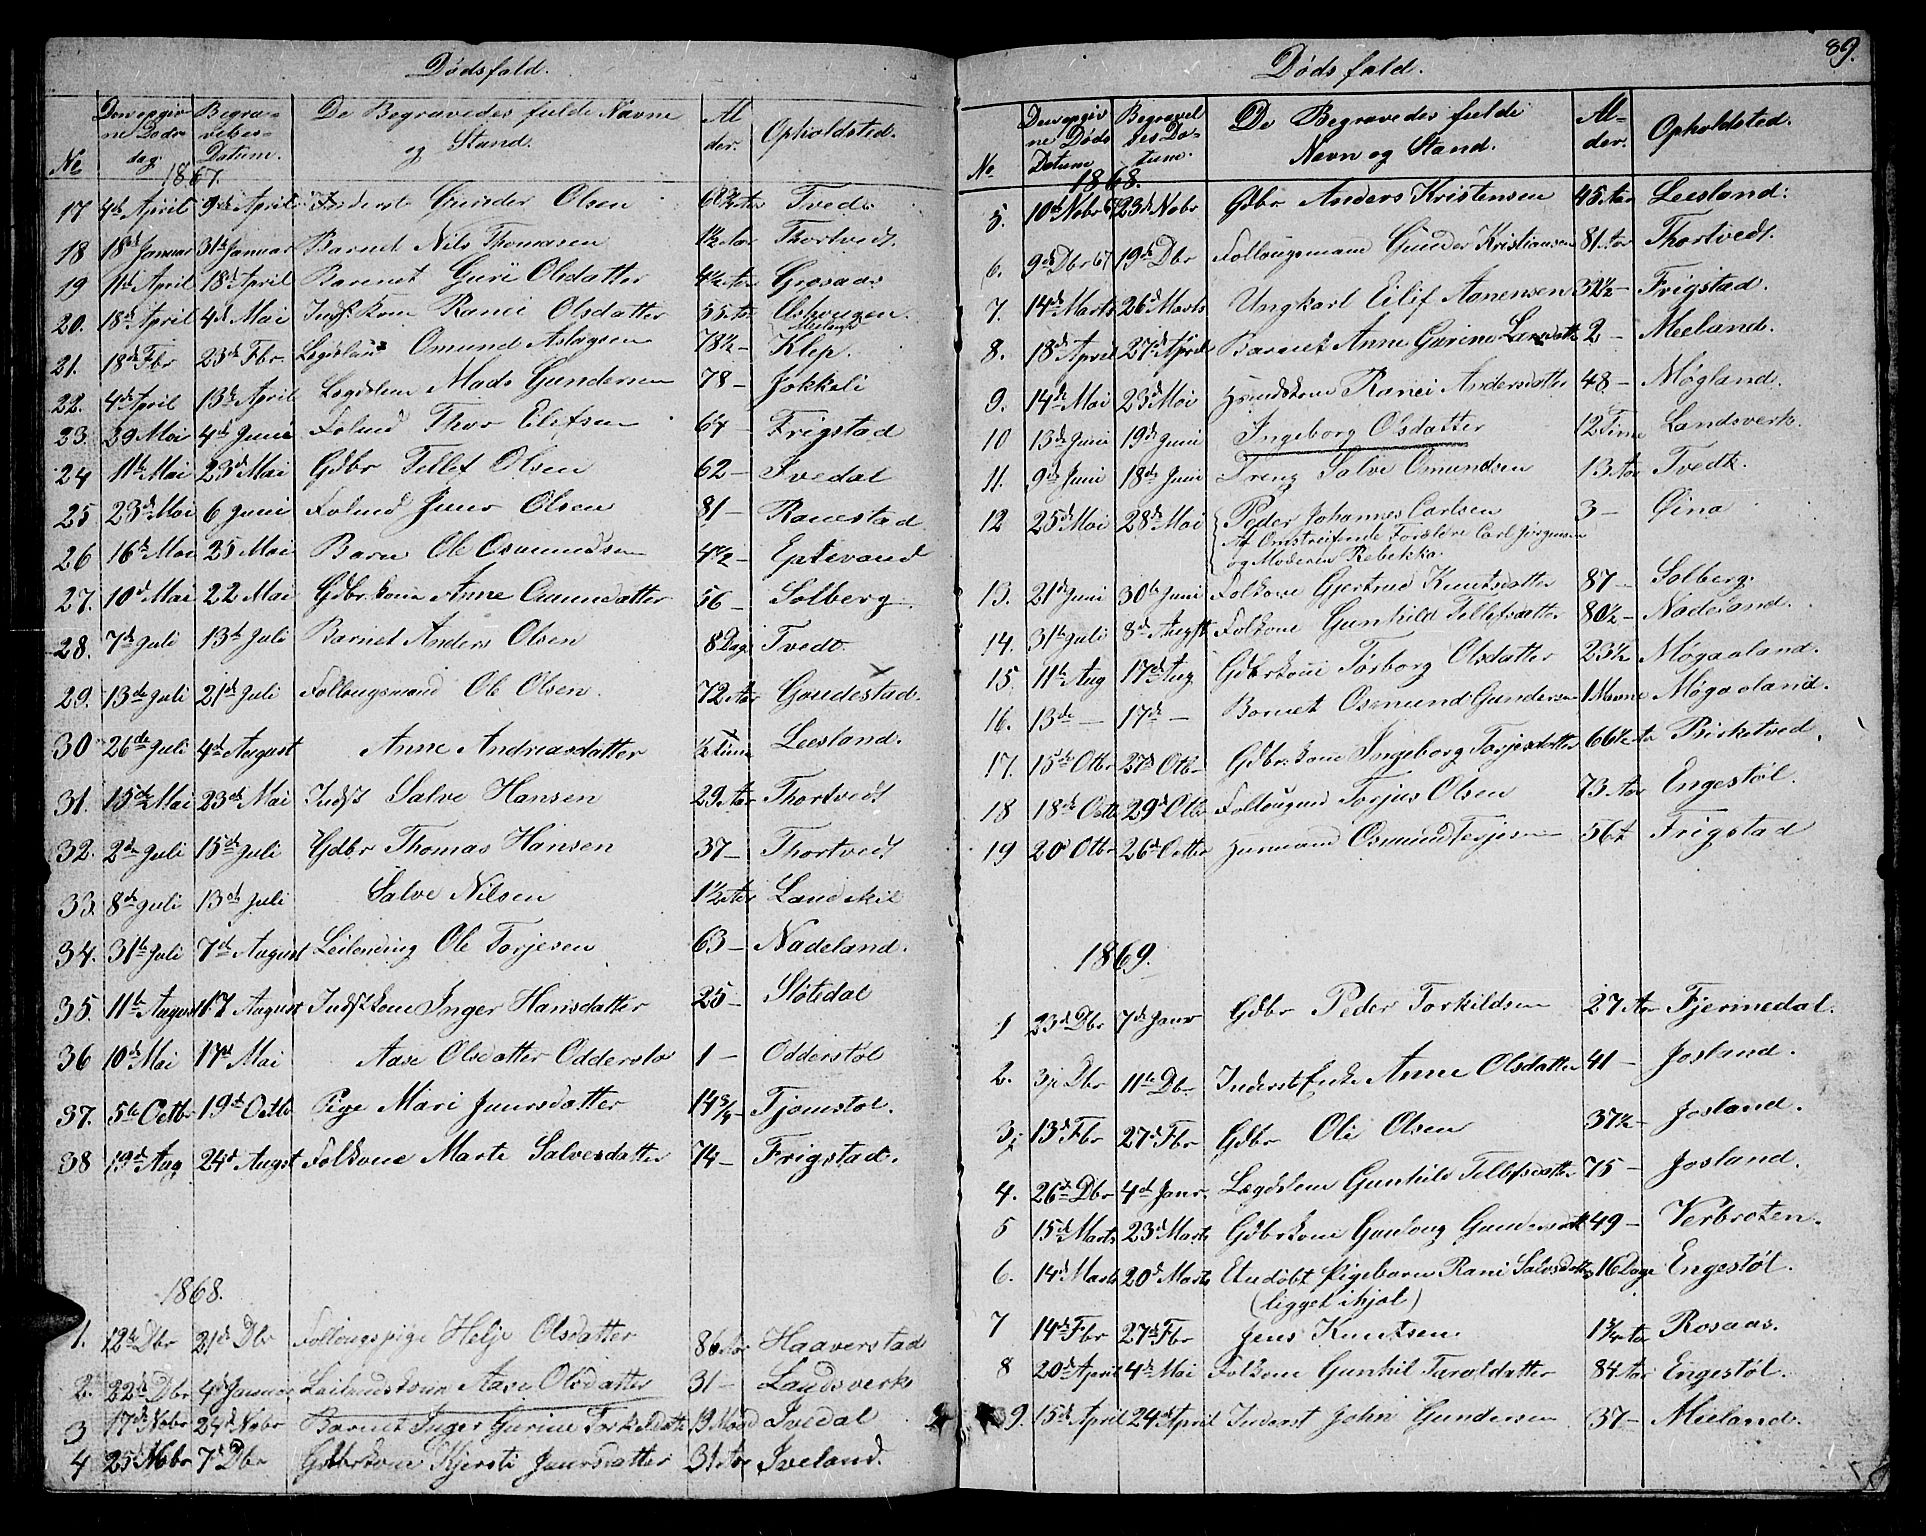 Dødsfald.
No
Den opgivne Døds dag.
Begravelses Datum.
De Begravedes fulde Navne og Stand.
Alder.
Opholdsted.
1867.
17 4de April 9de April Inderst Gunder Olsen Tvedt
18 18de Januar 31te Januar Barnet Nils Thomasen 1½ Aar Thortvedt.
19 11te April 18de April Barnet Guri Olsdatter 4½ Aar Grosaas
20. 18de April 4de Mai Indst kone Ranei Olsdatter 55 Aar
21. 18de Fbr 23de Fbr. Omund Aslagsen 78½ – Klep.
22. 4de April 13de April Lægdslem Mads Gundersen 78 – Jokkeli
23. 29 Mai 4de Juni Folmd Thor Elefsen 64 – Frigstad
24 11te Mai 23de Mai Gdbr Tellef Olsen 62 – Ivedal
25 23de Mai 6 Juni Folmd Juur Olsen 81 – Ranestad
26 16de Mai 25 Mai Barn Ole Osmundsen 4½ – Eptevand
27. 10de Mai 22 Mai Gdbr.kone Anne Omundatter 56 – Solberg.
28. 7de Juli 13de Juli Barnet Anders Olsen 8 Dag Tvedt.
29. 13de Juli 21de Juli Follougsmand Ole Olsen. 72 Aar Gaudestad.
30 26de Juli 4de August Anne Andreasdatter ½ Time Leesland.
31. 15de Mai 23de Mai Indst Salve Hansen 29 Aar Thortvedt
32. 2de Juli 15de Juli Gdbr Thomas Hansen 37 – Thortvedt
33. 8de Juli 13de Juli Salve Nilsen 1½ Aar Landskil
34. 31te Juli 7de August Leilending Ole Torjesen 63 – Nadeland.
35. 11te August 17 August Indst kone Inger Hansdatter 25 – Støtedal
36 10de Mai 17de Mai Aase Olsdatter Odderstøl 1 – Odderstøl
37. 5te Octbr 19de Octbr Pige Mari Juursdatter 14 3/4 – Tjomstøl.
38 19de Aug 24de Augst Folkone Marte Salvesdatter 74 – Frigstad.
1868.
1. 12te Dbr 21de Dbr Follougspige Helje Olsdatter 86 Aar Haaverstad
2. 22de Dbr 4de Januar Leilendskone Aase Olsdatter 31 – Landsverk
3 17de Nobr 24de Nobr Barnet Inger Gurine Torkelsdatt 19 Maand Ivedal
4 25de Nobr 7de Dbr Gdbrkone Kjersti Juursdatter 31 Aar Iveland.
89.
Dødsfald.
No
Den opgivne Døds Datum
Begravelses Datum.
De Begravedes fulde Navn og Stand.
Alder.
Opholdsted.
1868.
5. 10de Nobr 67 23de Nobr Gdbr Anders Kristensen 45 Aar Leesland.
6. 9de Dbr 67 19de Dbr Follougsmand Gunder Kristiansen 81 Aar Thortvedt.
7. 14de Marts 26de Marts Ungkarl Eilif Aanensen 32½ – Frigstad.
8. 18de April 27de April Barnet Anne Gurine Larsdatt 2 – Mieland.
9. 14de Mai 23de Mai Huuskone Ranei Andersdatter 48 – Møgland.
10 13de Juni 19de Juni Ingeborg Olsdatter 12 Time Landsverk.
11. 9de Juni 18de Juni Dreng Salve Omundsen 13 Aar Tvedt.
12 25de Mai 28de Mai Peder Johannes Carlsen 3 – Øina
Af Omstreifende Forældre Carl Jørgensen
og Moderen Rebekka.
13. 21de Juni 30te Juni Folkone Gjertrud Knutsdatter 87 – Solberg.
14. 31te Juli 8de Augst Folkone Gunhild Tellefsdatter 80½ – Nadeland.
15. 11te Aug 17de Aug Gdbrkone Torborg Olsdatter 23½ Møgaaland.
16. 13de – 17de – Barnet Osmund Gundersen Møgaaland.
17. 15de Otbr 27de Otbr Gdbr.kone Ingeborg Torjesdatter 66½ Aar Birketved.
18 18de Octb 29de Otbr Follougmd Torjus Olsen 73 Aar Engestøl.
19 20de Otbr 26de Octbr Huusmand Osmund Terjesen 56 Frigstad
1869.
1 23de Dbr 7de Janr Gdbr Peder Torkildsen 27 Aar Fjermedal.
2. 31 Dbr 11te Dbr. Inderstfirke Anne Olsdatter 41 – Josland.
3. 13de Fbr 27de Fbr Gdbr Ole Olsen 37½ – Josland.
4. 26de Dbr 4de Janr. Lægdslem Gunhild Tellefsdatter 75 – Josland.
5 15de Marts 23de Marts Gdbrkone Gunborg Gundersdatt 49 – Verbroten.
6. 14de Marts 20de Marts Et udøbt Pigebarn Rani Salvesdatter 16 Dage Engestøl.
(ligget ihjel)
7 14de Fbr 27de Fbr Jens Knutsen. 1 3/4 Aar Rosaas.
8 20de April 4de Mai Folkone Gunhil Taraldsdatter 84 Aar Engestøl.
9. 15de April 24de April Inderst John Gundersen 37 – Mieland.